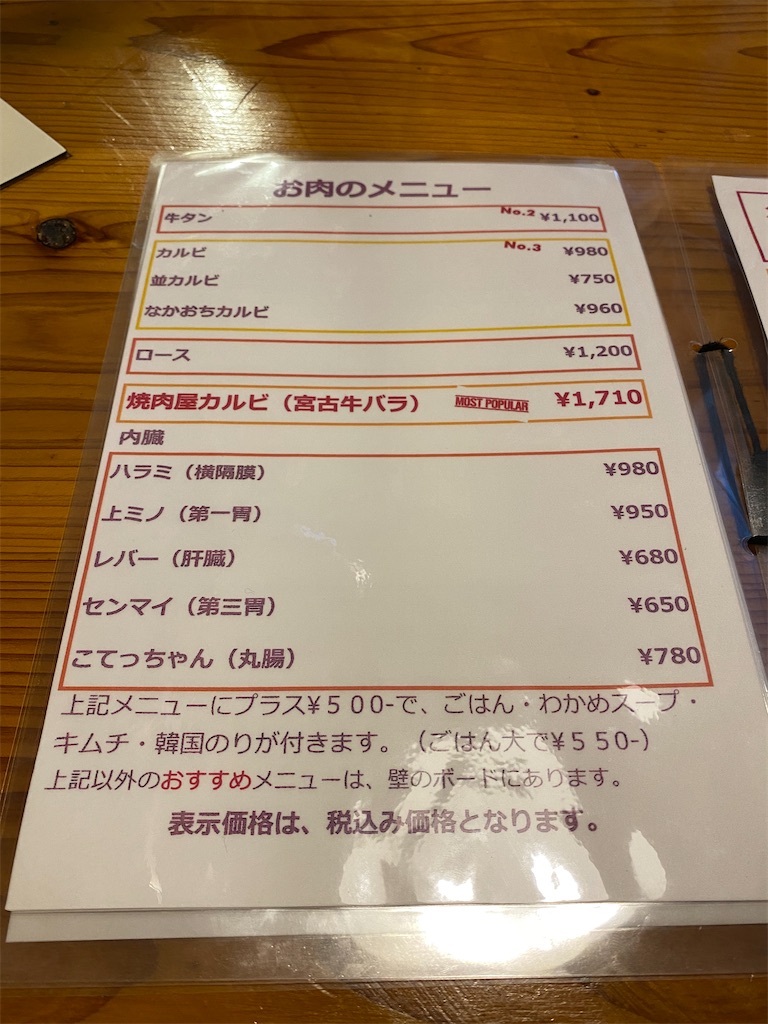 お肉のメニュー
牛タン No.2 ¥1,100
カルビ No.3 ¥980
並カルビ ¥750
なかおちカルビ ¥960
ロース ¥1,200
焼肉屋カルビ（宮古牛バラ） MOST POPULAR ¥1,710
内臓
ハラミ（横隔膜） ¥980
上ミノ（第一胃） ¥950
レバー（肝臓） ¥680
センマイ（第三胃） ¥650
こてっちゃん（丸腸） ¥780
上記メニューにプラス¥５００-で、ごはん・わかめスープ・
キムチ・韓国のりが付きます。（ごはん大で¥５５０-）
上記以外のおすすめメニューは、壁のボードにあります。
表示価格は、税込み価格となります。